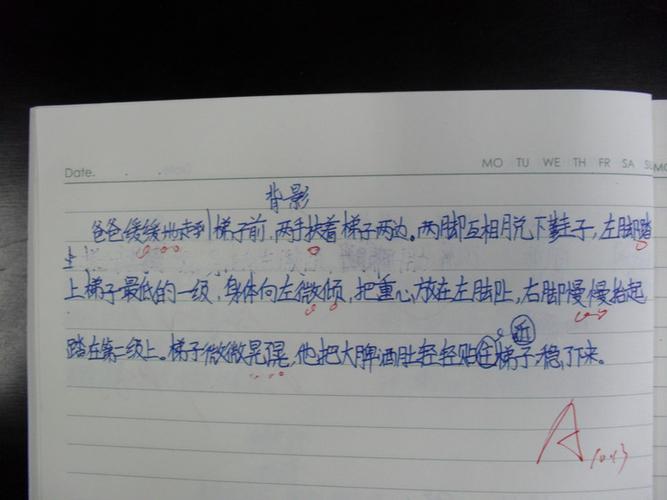 Date.
MO TU WE TH FR SA SU MO
背影
爸爸缓缓地走到梯子前,两手扶着梯子两边。两脚互相脱下鞋子,左脚踏
上
上梯子最低的一级,身体向左微倾,把重心放在左脚上,右脚慢慢抬起
踏在第二级上。梯子微微晃,他把大啤酒肚轻轻贴住梯子,稳了下来。
近
A
10.13